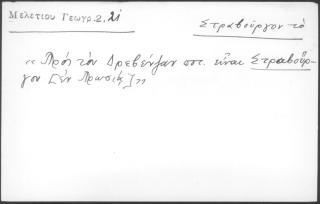 Μελετίου Γεωγρ.2, 21
Στραβοῦργον τὸ
« Πρὸς τὸν Δρεβένζαν ποτ. εἶναι Στραβοῦρ-
γον [ἐν Πρωσίᾳ] »